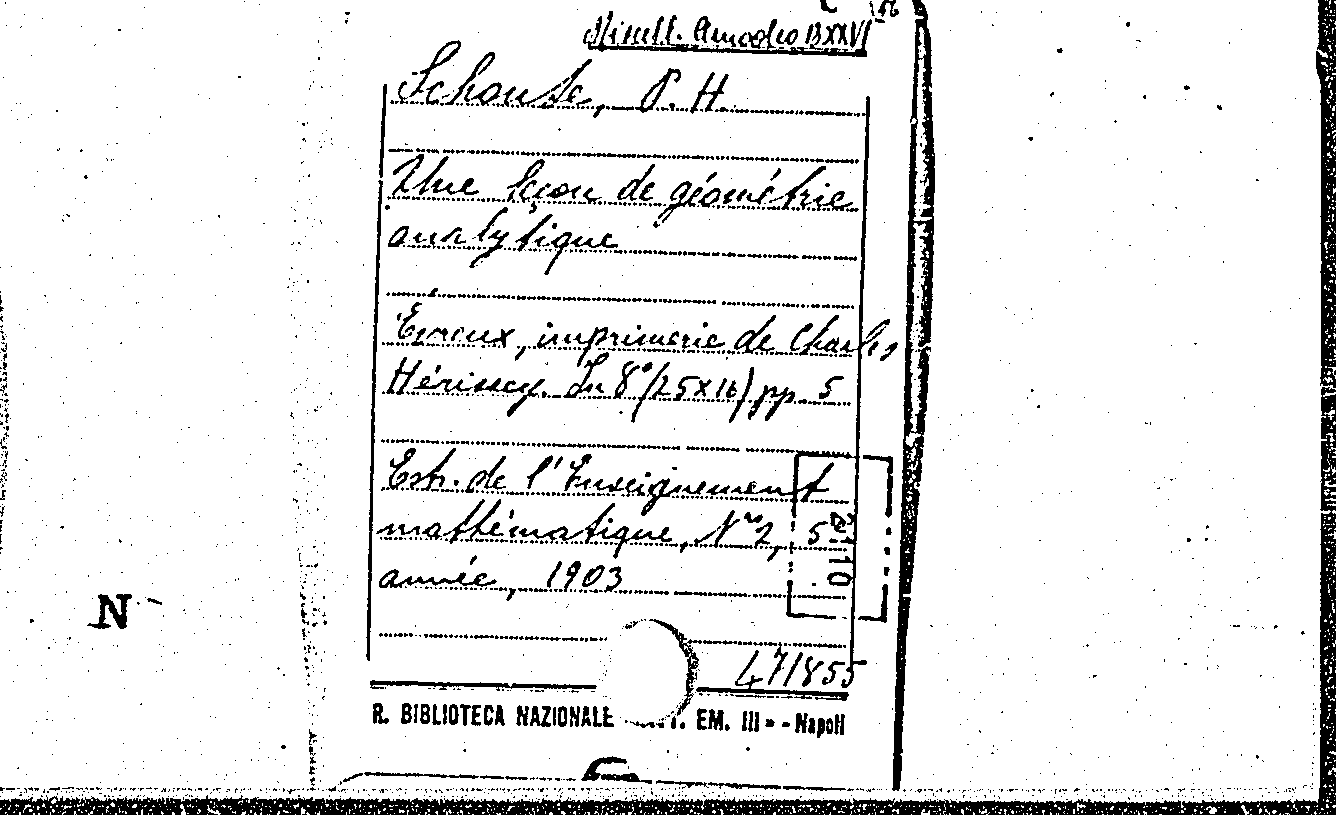 Miscell. Amodeo B XXVI
Schoute, P. H.
Une leçon de géométrie
analytique
Évreux, imprimerie de Charles
Hérissey. In 8° (25x16) pp. 5
Estr. de l'Enseignement
mathématique, N° 2, 5
année, 1903
N
471855
R. BIBLIOTECA NAZIONALE EM. III » - Napoli